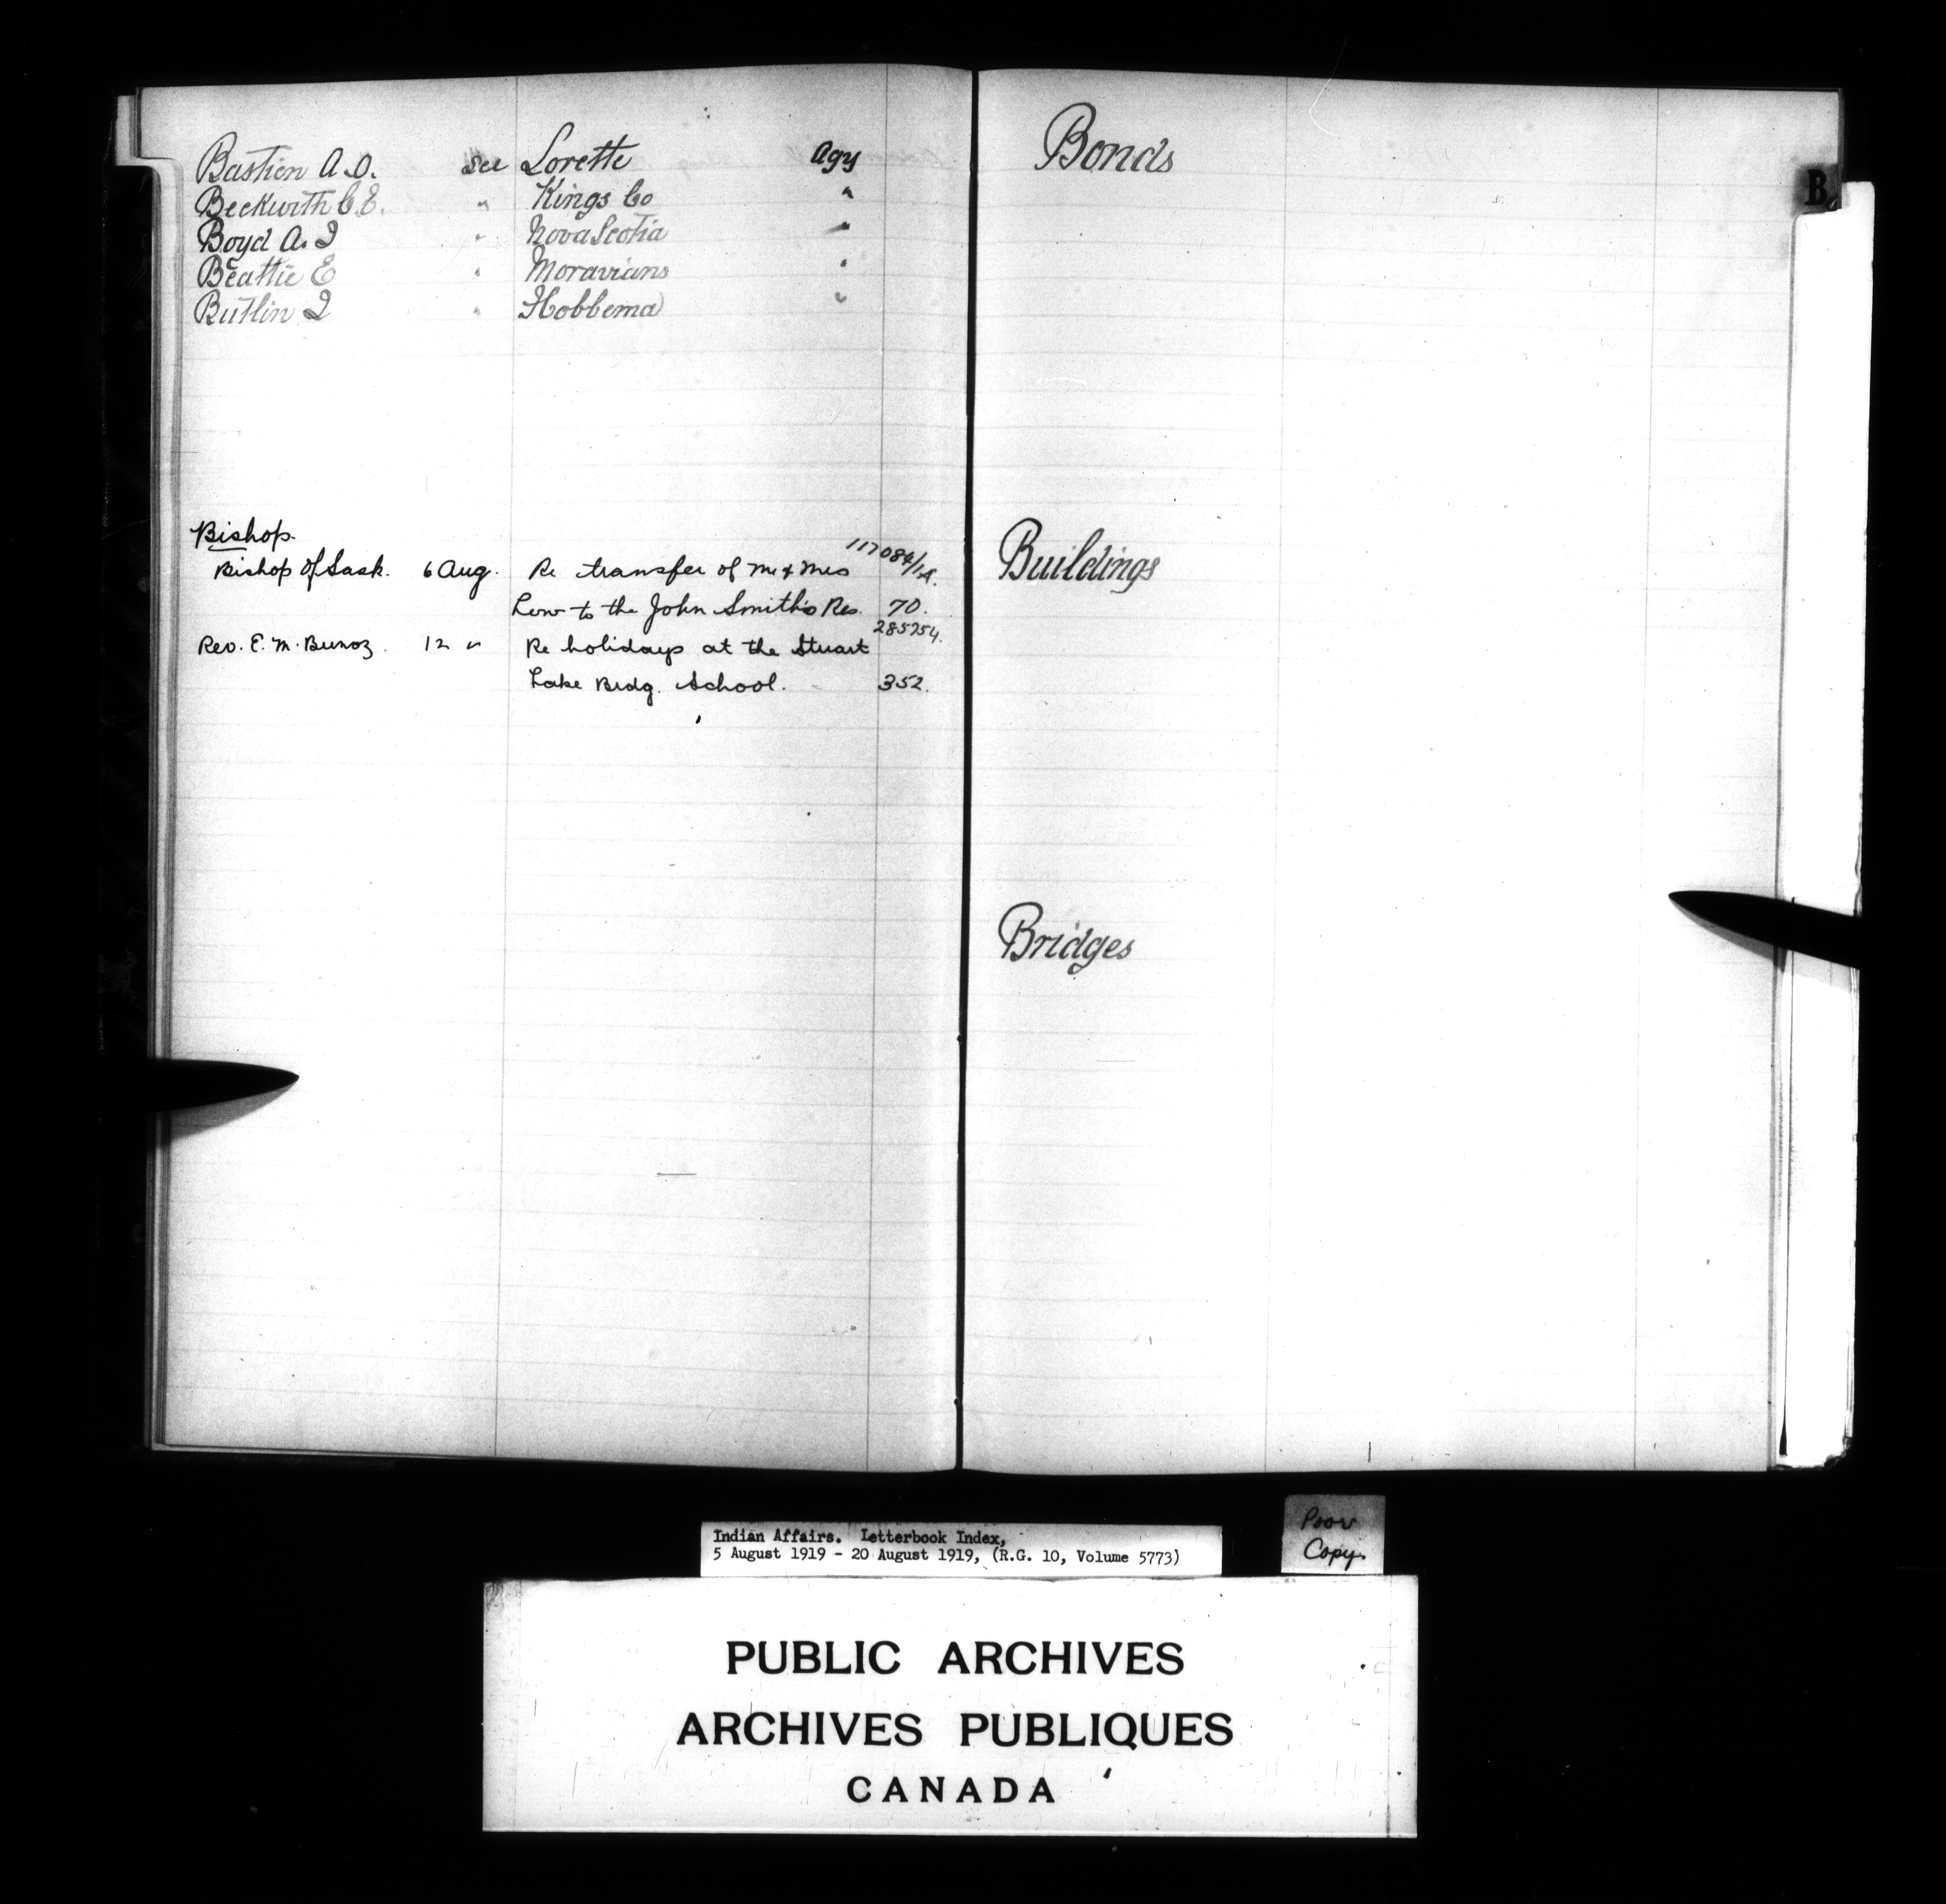 Bastien A.O. see Lorette Agy
Beckwith C.E. " Kings Co "
Boyd A.J " Nova Scotia "
Beattie E " Moravians "
Butlin J " Hobbema "
Bishop.
Bishop of Sask. 6 Aug. Re transfer of Mr & Mrs 117084/1A.
Low to the John Smith's Res. 70.
285254.
Rev. E. M. Bunoz. 12 " Re holidays at the Stuart
Lake Brdg. School. 352.
Bonds
B
Buildings
Bridges
Indian Affairs. Letterbook Index,
5 August 1919 - 20 August 1919, (R.G. 10, Volume 5773)
Poor
Copy.
PUBLIC ARCHIVES
ARCHIVES PUBLIQUES
CANADA